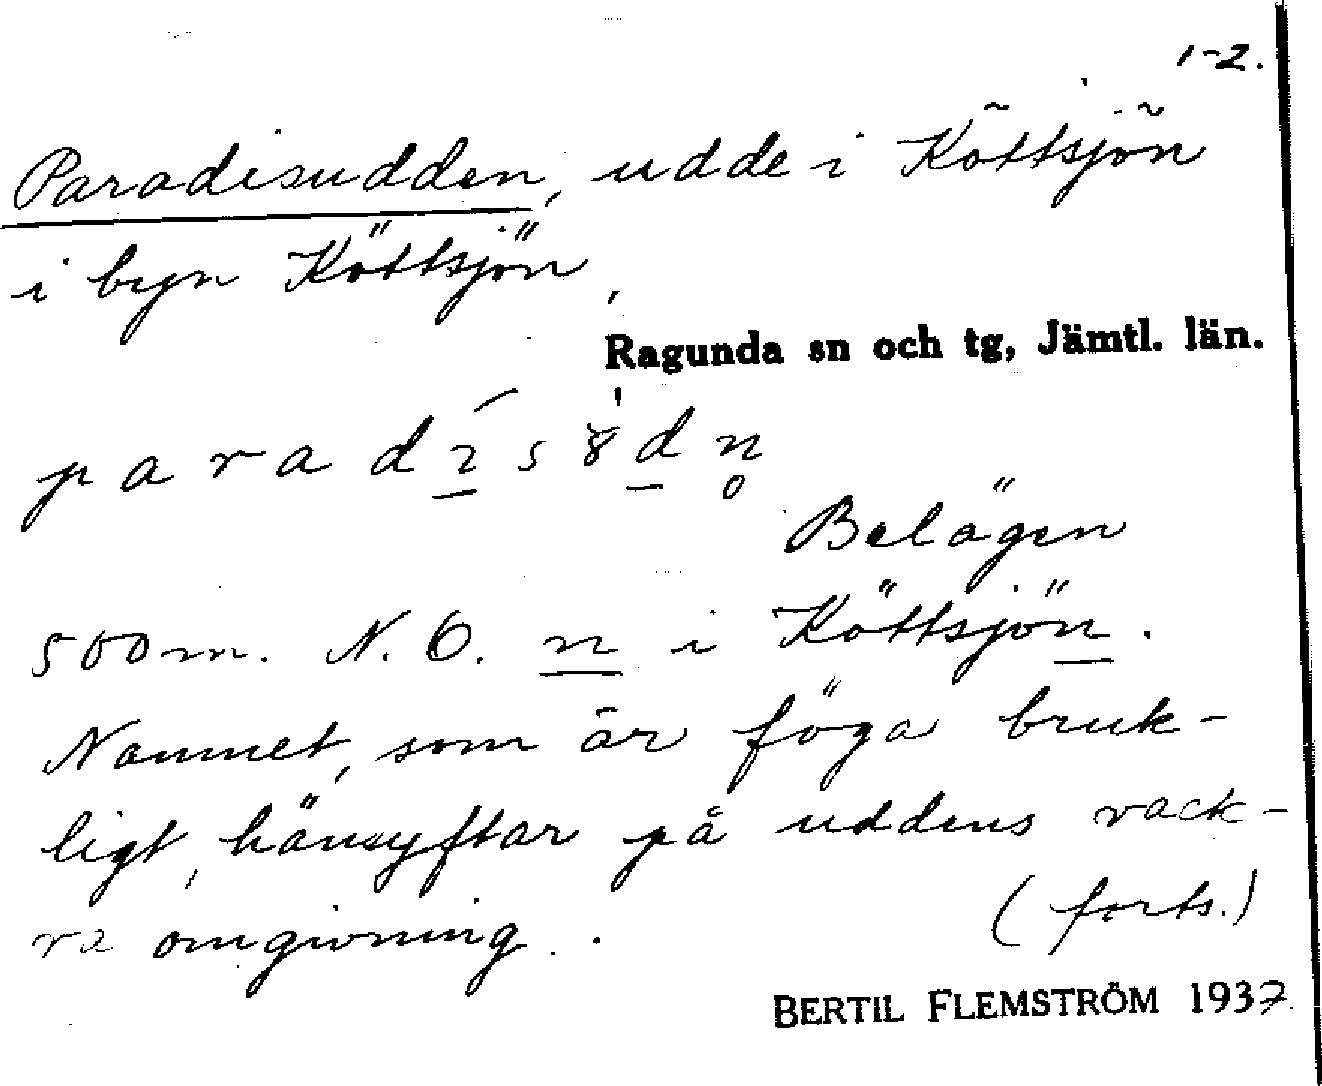 1-2.
Paradisudden, udde i Köttsjön
i byn Köttsjön,
Ragunda sn och tg, Jämtl. län.
Belägen
500 m. N.O. n i Köttsjön.
Namnet, som är föga bruk-
ligt, hänsyftar på uddens vack-
ra omgivning.
(forts.)
BERTIL FLEMSTRÖM 1937